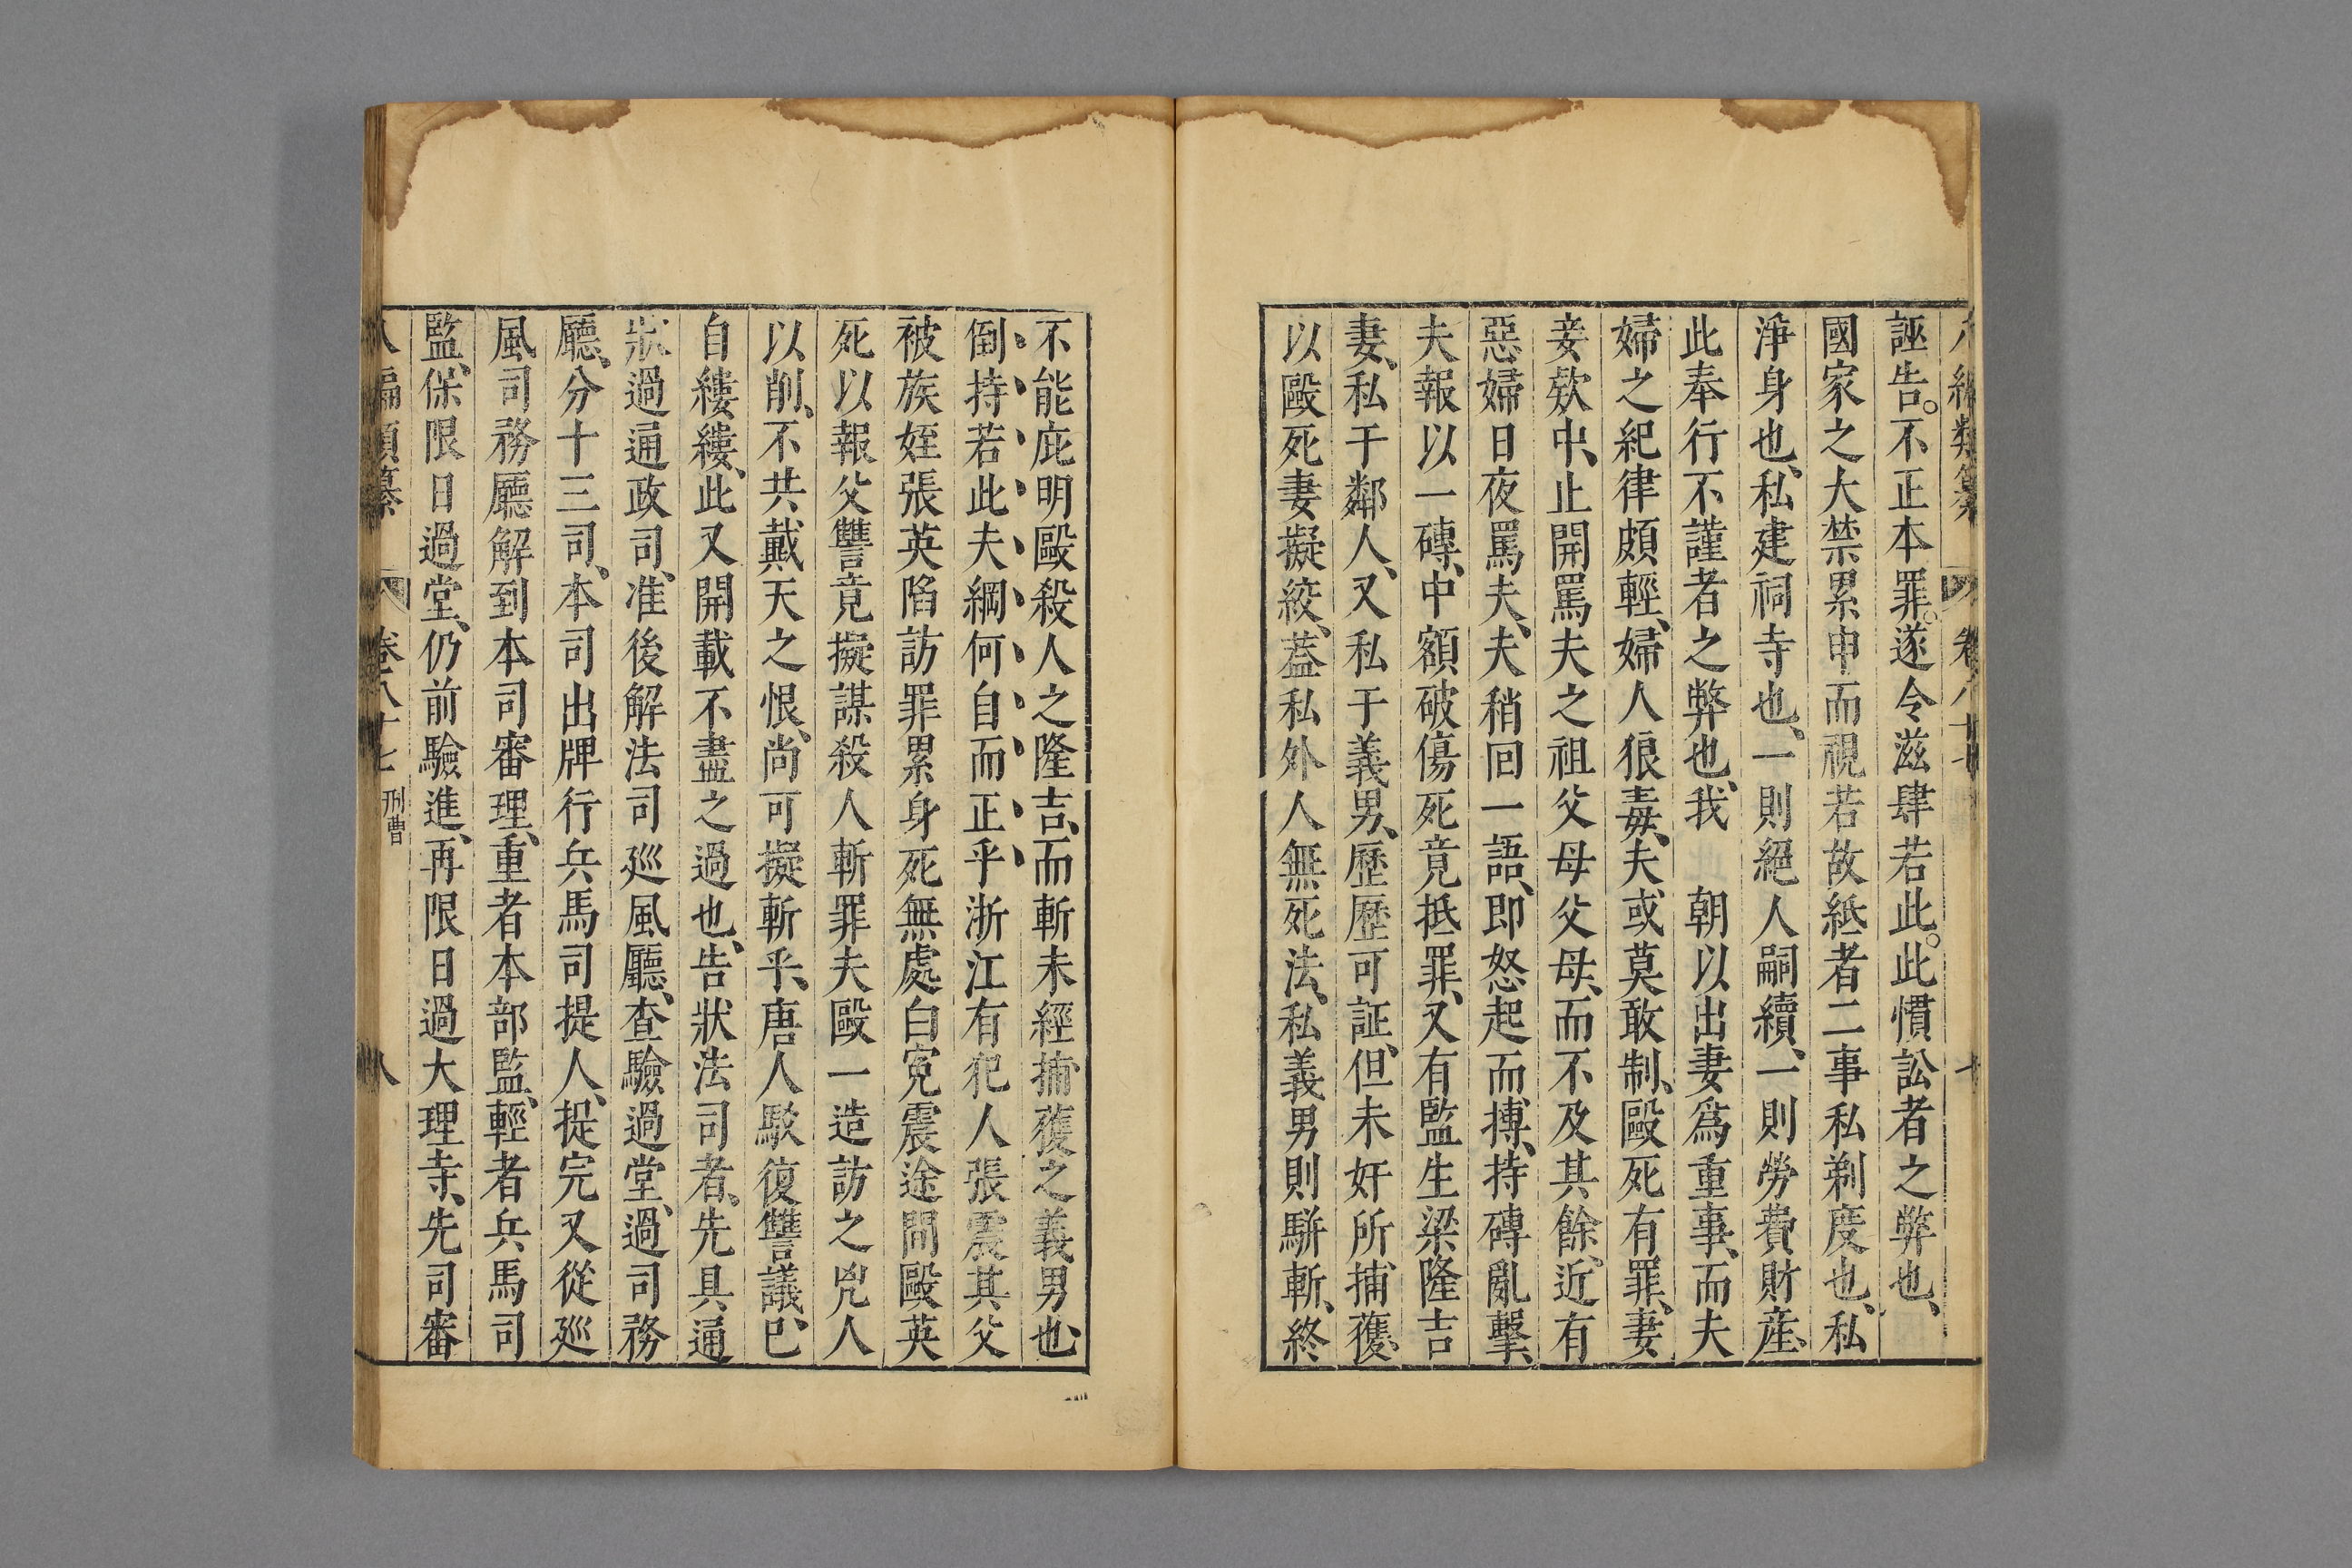 八編類纂 卷八十七 十
誣告。不正本罪。遂令滋肆若此。此慣訟者之弊也、
國家之大禁累申而視若故紙者二事私剃度也、私
淨身也、私建祠寺也、一則絕人嗣續、一則勞費財產、
此奉行不謹者之弊也、我 朝以出妻爲重事、而夫
婦之紀律頗輕、婦人狠毒、夫或莫敢制、毆死有罪、妻
妾欸中、止開罵夫之祖父母父母、而不及其餘、近有
惡婦日夜罵夫、夫稍回一語、即怒起而摶、持磚亂擊、
夫報以一磚、中額破傷死竟抵罪、又有監生梁隆吉
妻、私于鄰人、又私于義男、歷歷可証、但未奸所捕獲、
以毆死妻擬絞、葢私外人無死法、私義男則駢斬、終
不能庇明毆殺人之隆吉、而斬未經捕獲之義男也、
倒持若此夫綱何自而正乎浙江有犯人張震其父
被族姪張英陷訪罪累身死無處白寃震途間毆英
死以報父讐竟擬謀殺人斬罪夫毆一造訪之兇人
以削、不共戴天之恨、尚可擬斬乎、唐人駁復讐議、已
自縷縷、此又開載不盡之過也、告狀法司者、先具通
狀過通政司、准後解法司廵風廳、查驗過堂、過司務
廳、分十三司、本司出牌行兵馬司提人、提完又從廵
風司務廳解到本司審理、重者本部監、輕者兵馬司
監、保限日過堂、仍前驗進、再限日過大理寺、先司審
八編類纂 卷八十七 刑曹 八